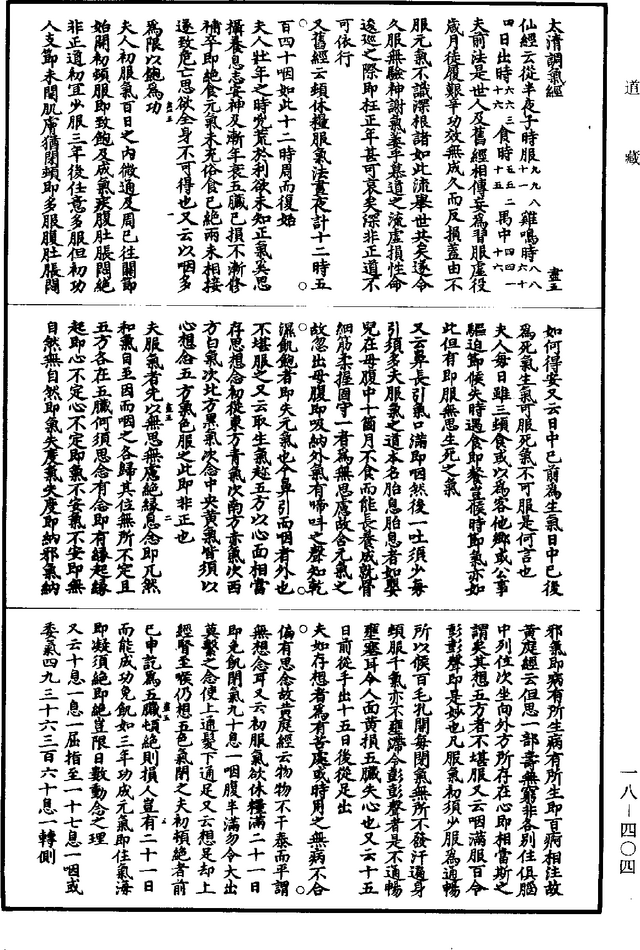 道藏
太清調氣經
盡五
仙經云從半夜子時服九九八十一雞鳴時八八六十
四日出時六六三十六食時五五二十五禺中四四一十六
夫前法是世人及舊經相傳妄為習服虛役
歲月徒履艱辛功效無成久而反損蓋由不
服元氣不識深根諸如此流舉世共矣遂令
久服無驗神謝氣萎乎慕道之流虛損性命
逡巡之際即枉正年甚可哀矣深非正道不
可依行
又舊經云頓休糧服氣法晝夜計十二時五
百四十咽如此十二時周而復始
夫人壯年之時唲荒於利欲未知正氣奚思
攝養息志安神及漸年衰五臟已損不漸修
補卒即絕食元氣未充俗食已絕兩未相接
遂致危亡思欲全身不可得也又云以咽多
為限以飽為功
夫人初服氣百日之內微通及周已往關節
始開初頓服即致飽及成氣疾腹肚脹悶絕
非正道初宜少服三年後任意多服但初功
人支節未開肌膚猶閉頓即多服腹肚脹悶
如何得安又云日中已前為生氣日中已後
為死氣生氣可服死氣不可服是何言也
夫人每日雖三頓食或以為客他鄉或公事
驅迫節候失時遇食即餐豈候時節氣亦如
此但有即服無思生死之氣
又云鼻長引氣口滿即咽然後一吐須少每
引須多夫服氣之道本名胎息胎息者如嬰
兒在母腹中十箇月不食而能長養成就骨
細筋柔握固守一者為無思慮故含元氣之
故忽出母腹即吸納外氣有啼叫之聲知乾
濕飢飽者即失元氣也今鼻引而咽者外也
不堪服之又云取生氣超五方以心面相當
存思想念初從東方青氣次南方赤氣次西
方白氣次北方黑氣次念中央黃氣皆須以
心想念五方氣色服之此即非正也
夫服氣者先以無思無慮絕緣息念即兀然
和氣自至因而咽之各歸其位無所不定且
五方各在五臟何須思念有念即有緣起緣
起即心不定心不定即氣不安氣不安即無
自然無自然即氣失度氣失度即納邪氣納
邪氣即病有所生病有所生即百病相注故
黃庭經云但思一部壽無窮非各別住俱腦
中列位次坐向外方所存在心即相當斯之
謂矣其想五方者不堪服又云咽滿服百令
彭彭聲即是妙也凡服氣初須少服為通暢
所以候百毛孔開每閉氣無所不發汗遍身
頓服千氣亦不壅滯令彭彭聲者是不通暢
壅塞耳令人面黃損五臟失心也又云十五
日前從手出十五日後從足出
夫如存想者為有苦處或時用之無病不合
偏有思念故黃庭經云物物不干泰而平謂
無想念耳又云初服氣欲休糧滿二十一日
即免飢閉氣九十息一咽腹半滿勿令大出
莫繫之念使上通髮下通足又云想足却上
經腎至喉仍想五色氣閉之夫初頓絕者前
已申訖為五臟頓絕則損人豈有二十一日
而能成功免飢如三年功成元氣即住氣海
即凝須絕即絕豈限日數動念之理
又云十息一息一屈指至一十七息一咽或
委氣四九三十六三百六十息一轉側
一八—四〇四